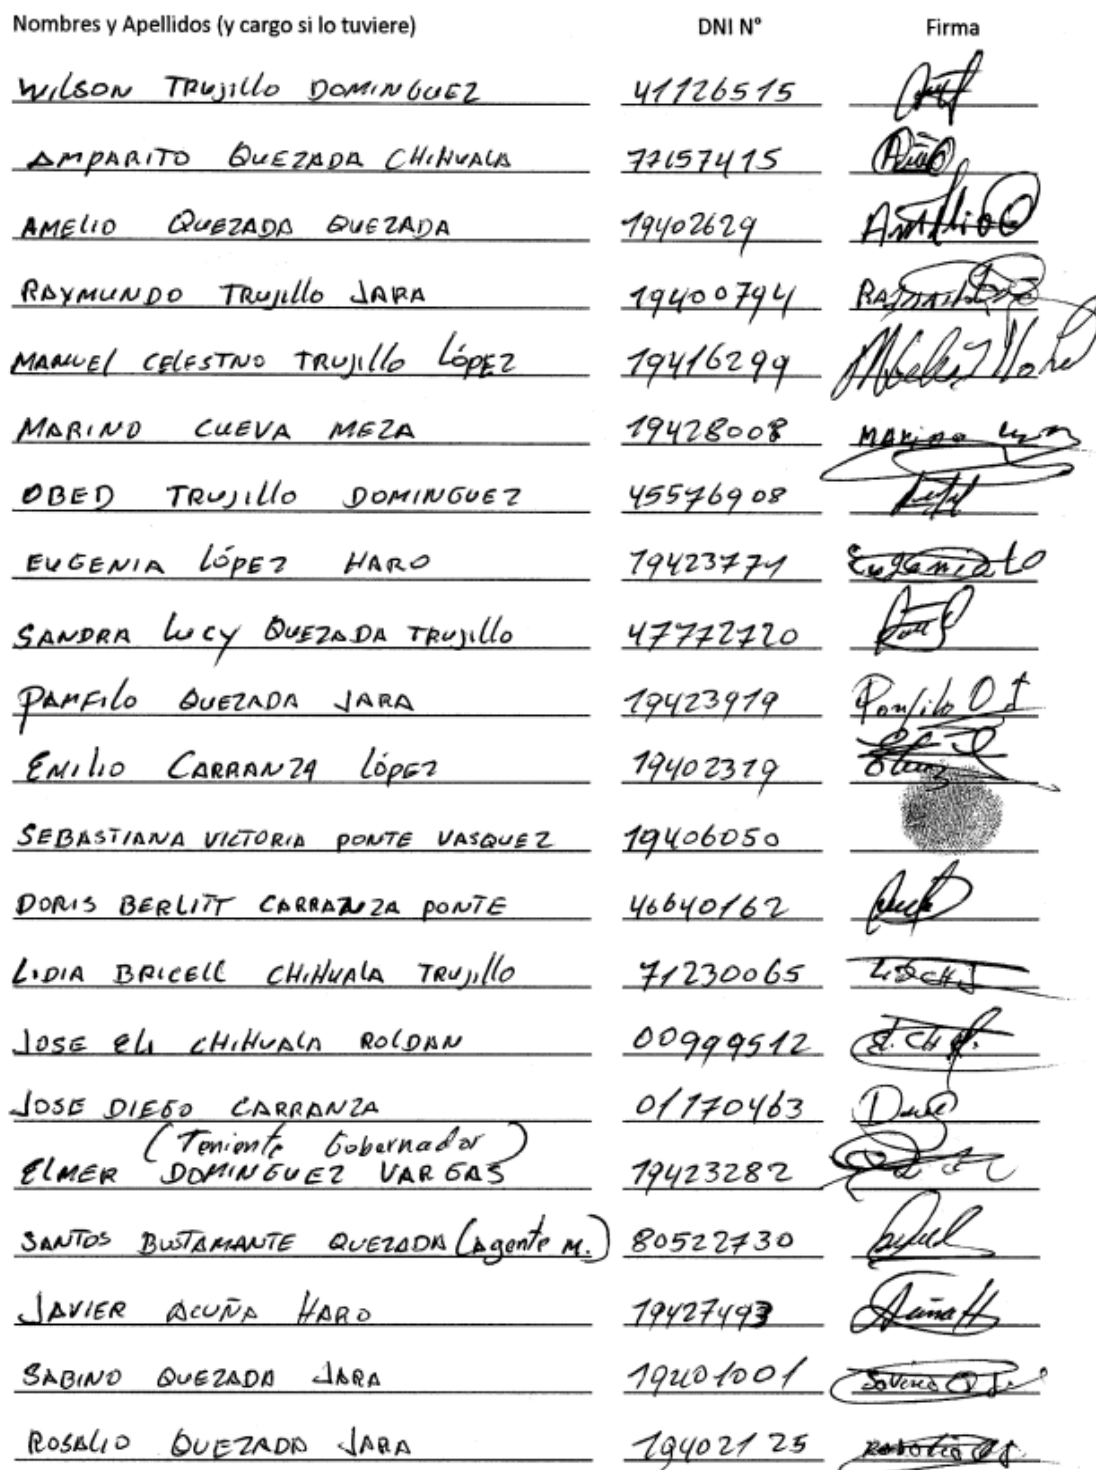 Nombres y Apellidos (y cargo si lo tuviere) DNI N° Firma
WILSON TRUJILLO DOMINGUEZ 41126515
AMPARITO QUEZADA CHIHUALA 77157415
AMELIO QUEZADA QUEZADA 19402629 Amelio Q
RAYMUNDO TRUJILLO JARA 19400794
MANUEL CELESTNO TRUJILLO LÓPEZ 19416299
MARINO CUEVA MEZA 19428008 MARINO
OBED TRUJILLO DOMINGUEZ 45576908
EUGENIA LÓPEZ HARO 19423771 Eugenia LO
SANDRA LUCY QUEZADA TRUJILLO 47772720
PAMFILO QUEZADA JARA 19423919 Panfilo Q J
EMILIO CARRANZA LÓPEZ 19402379
SEBASTIANA VICTORIA PONTE VASQUEZ 19406050
DORIS BERLITT CARRANZA PONTE 46640162
LIDIA BRICELL CHIHUALA TRUJILLO 71230065
JOSE ELI CHIHUALA ROLDAN 00999512
JOSE DIEGO CARRANZA 01170463
(Teniente Gobernador)
ELMER DOMINGUEZ VARGAS 19423282
SANTOS BUSTAMANTE QUEZADA (Agente M.) 80522730
JAVIER ACUÑA HARO 19427493 Acuña H
SABINO QUEZADA JARA 19401001
ROSALIO QUEZADA JARA 19402125